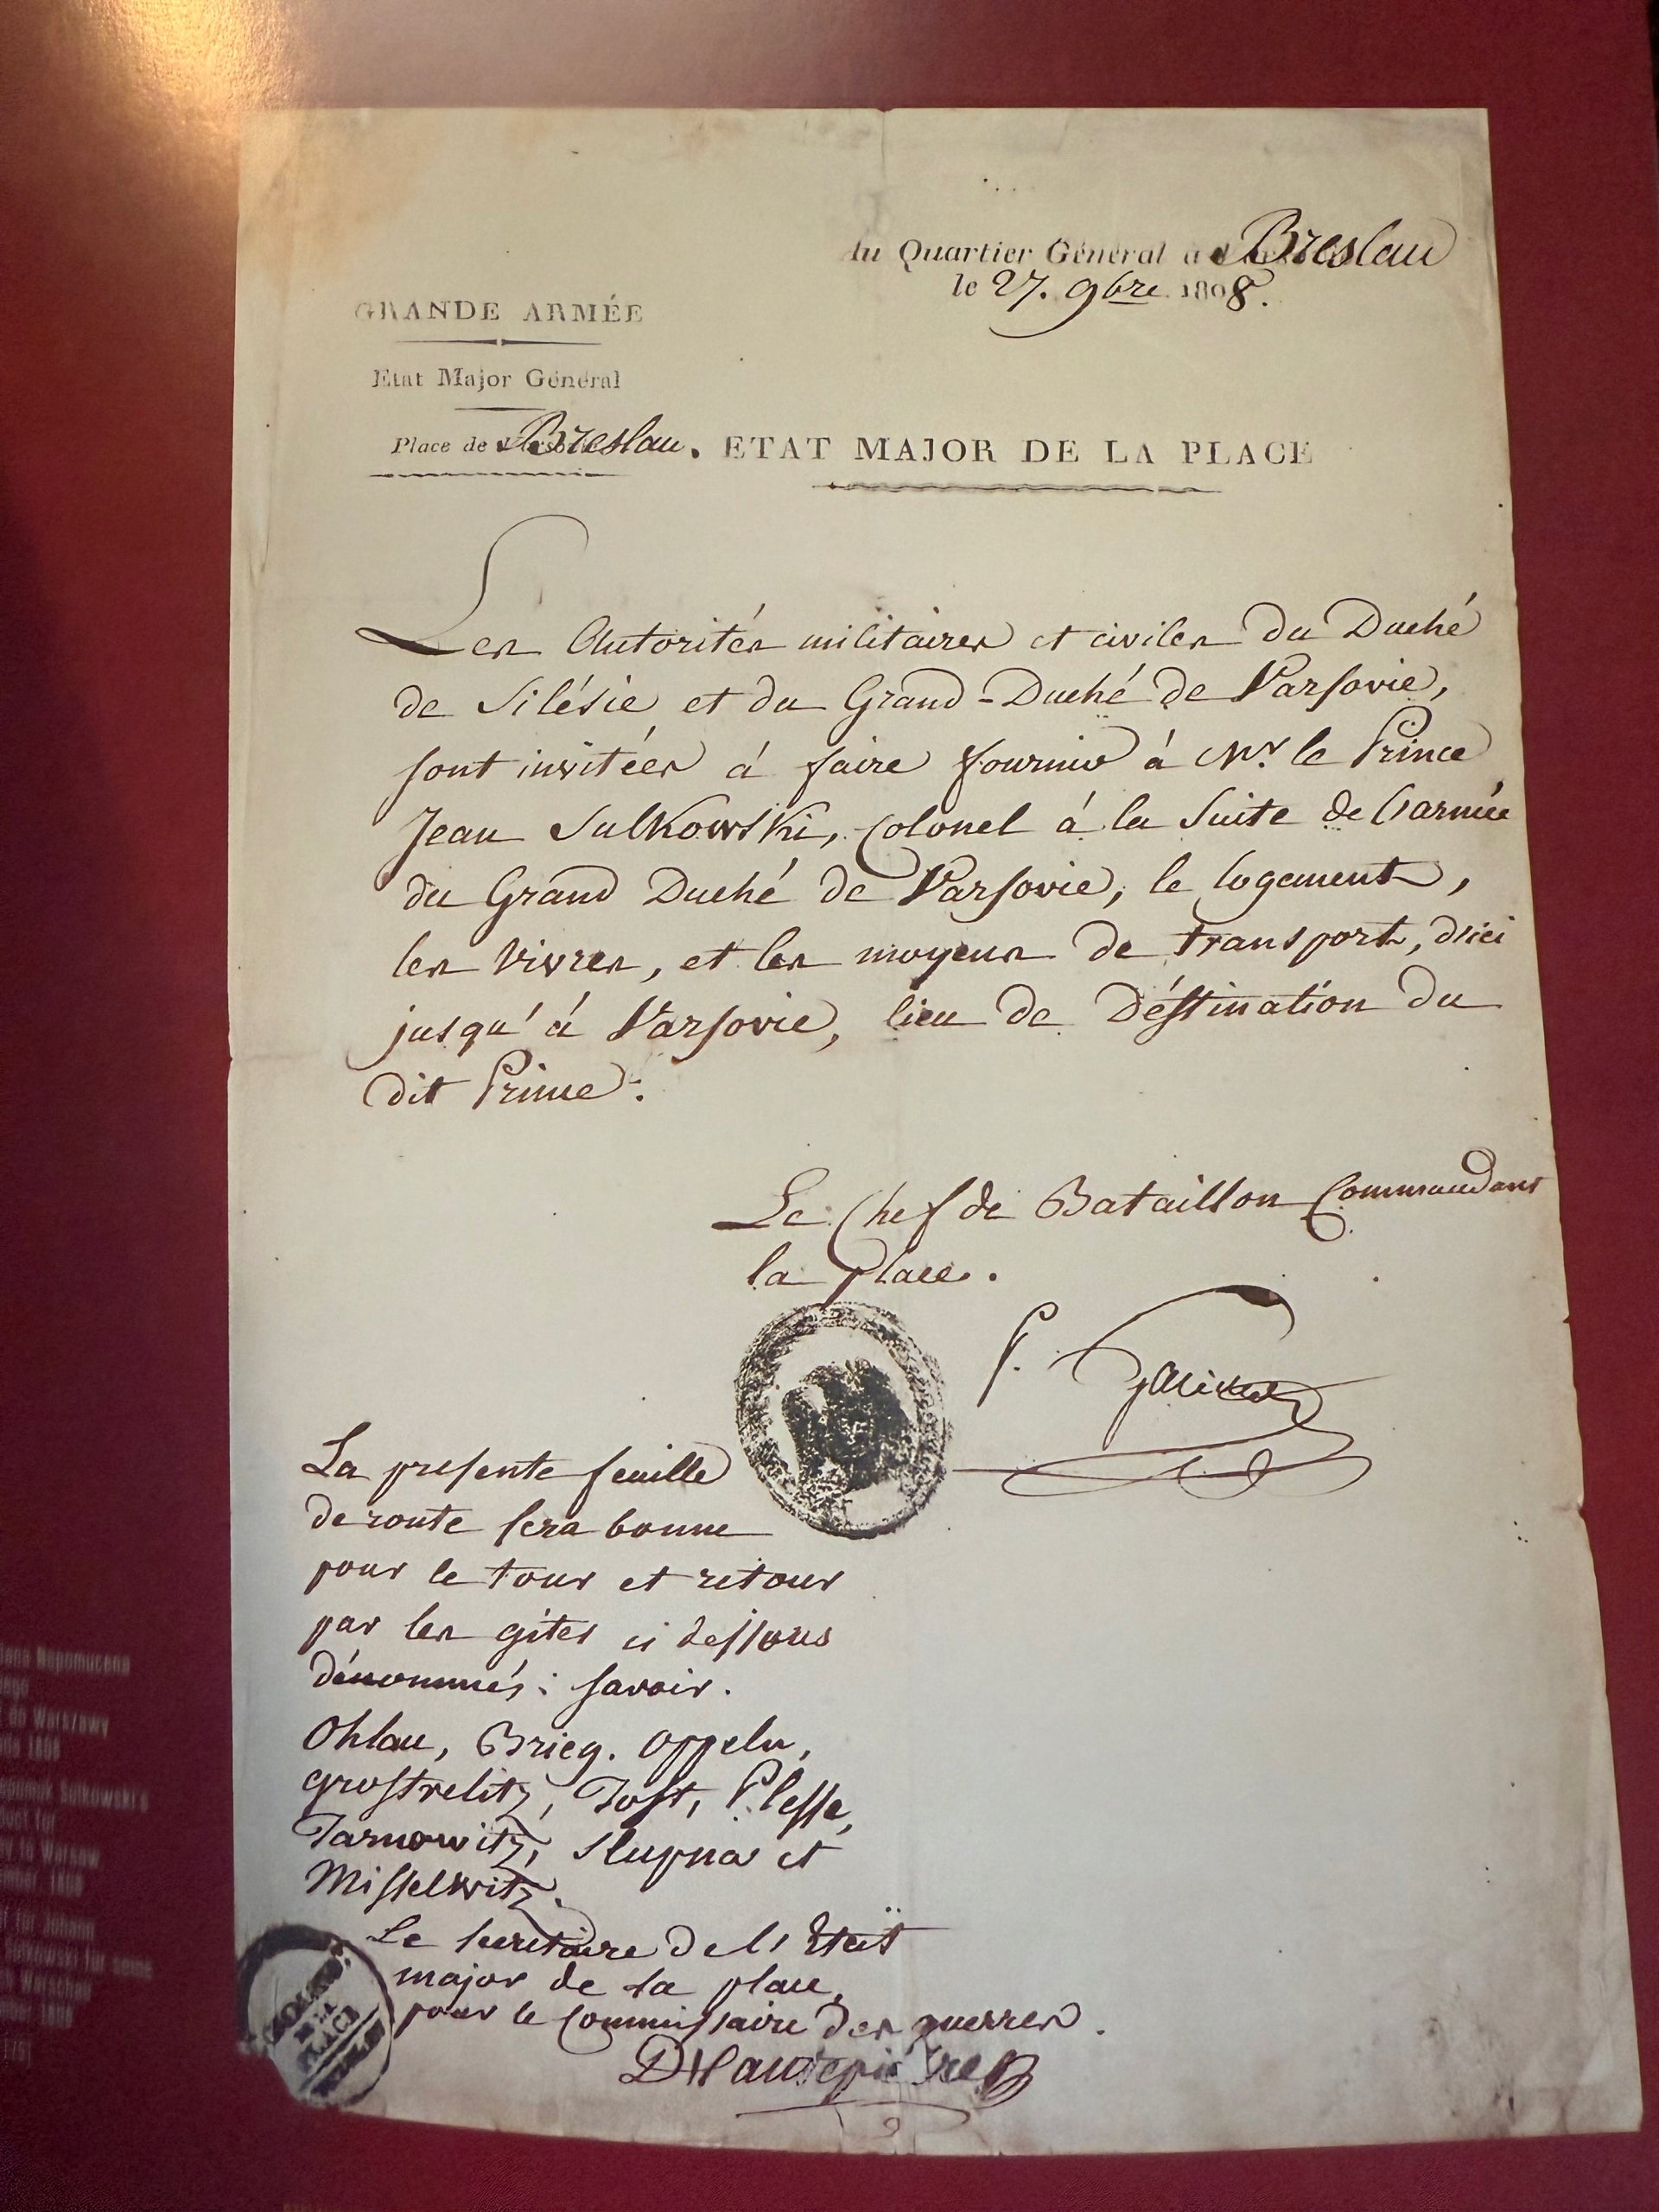 au Quartier Général à Breslau
le 27. 9bre 1808.
GRANDE ARMÉE
Etat Major Général
Place de Breslau.
ETAT MAJOR DE LA PLACE
Les Autorités militaires et civiles du Duché
de Silésie et du Grand-Duché de Varsovie,
sont invitées á faire fournir á Mr. le Prince
Jean Sulkowski, Colonel á la Suite de l'armée
du Grand Duché de Varsovie, le logement,
les vivres, et les moyens de transport, d'ici
jusqu'á Varsovie, lieu de Déstination du
dit Prince.
Le Chef de Bataillon Commandant
la place.
La presente feuille
de route sera bonne
pour le tour et retour
par les gites ci dessous
dénommés: savoir.
Ohlau, Brieg. Oppeln,
Grostrelitz, Tost, Plesse,
Tarnowitz, Slupna et
Misselwitz.
Le secretaire de l'Etat
major de la place,
pour le Commissaire des guerres.
DE LA
PLACE
Nepomucena
do Warszawy
1808
Sulkowski's
to Warsaw
1808
für Johann
Sulkowski für seine
Warschau
1808